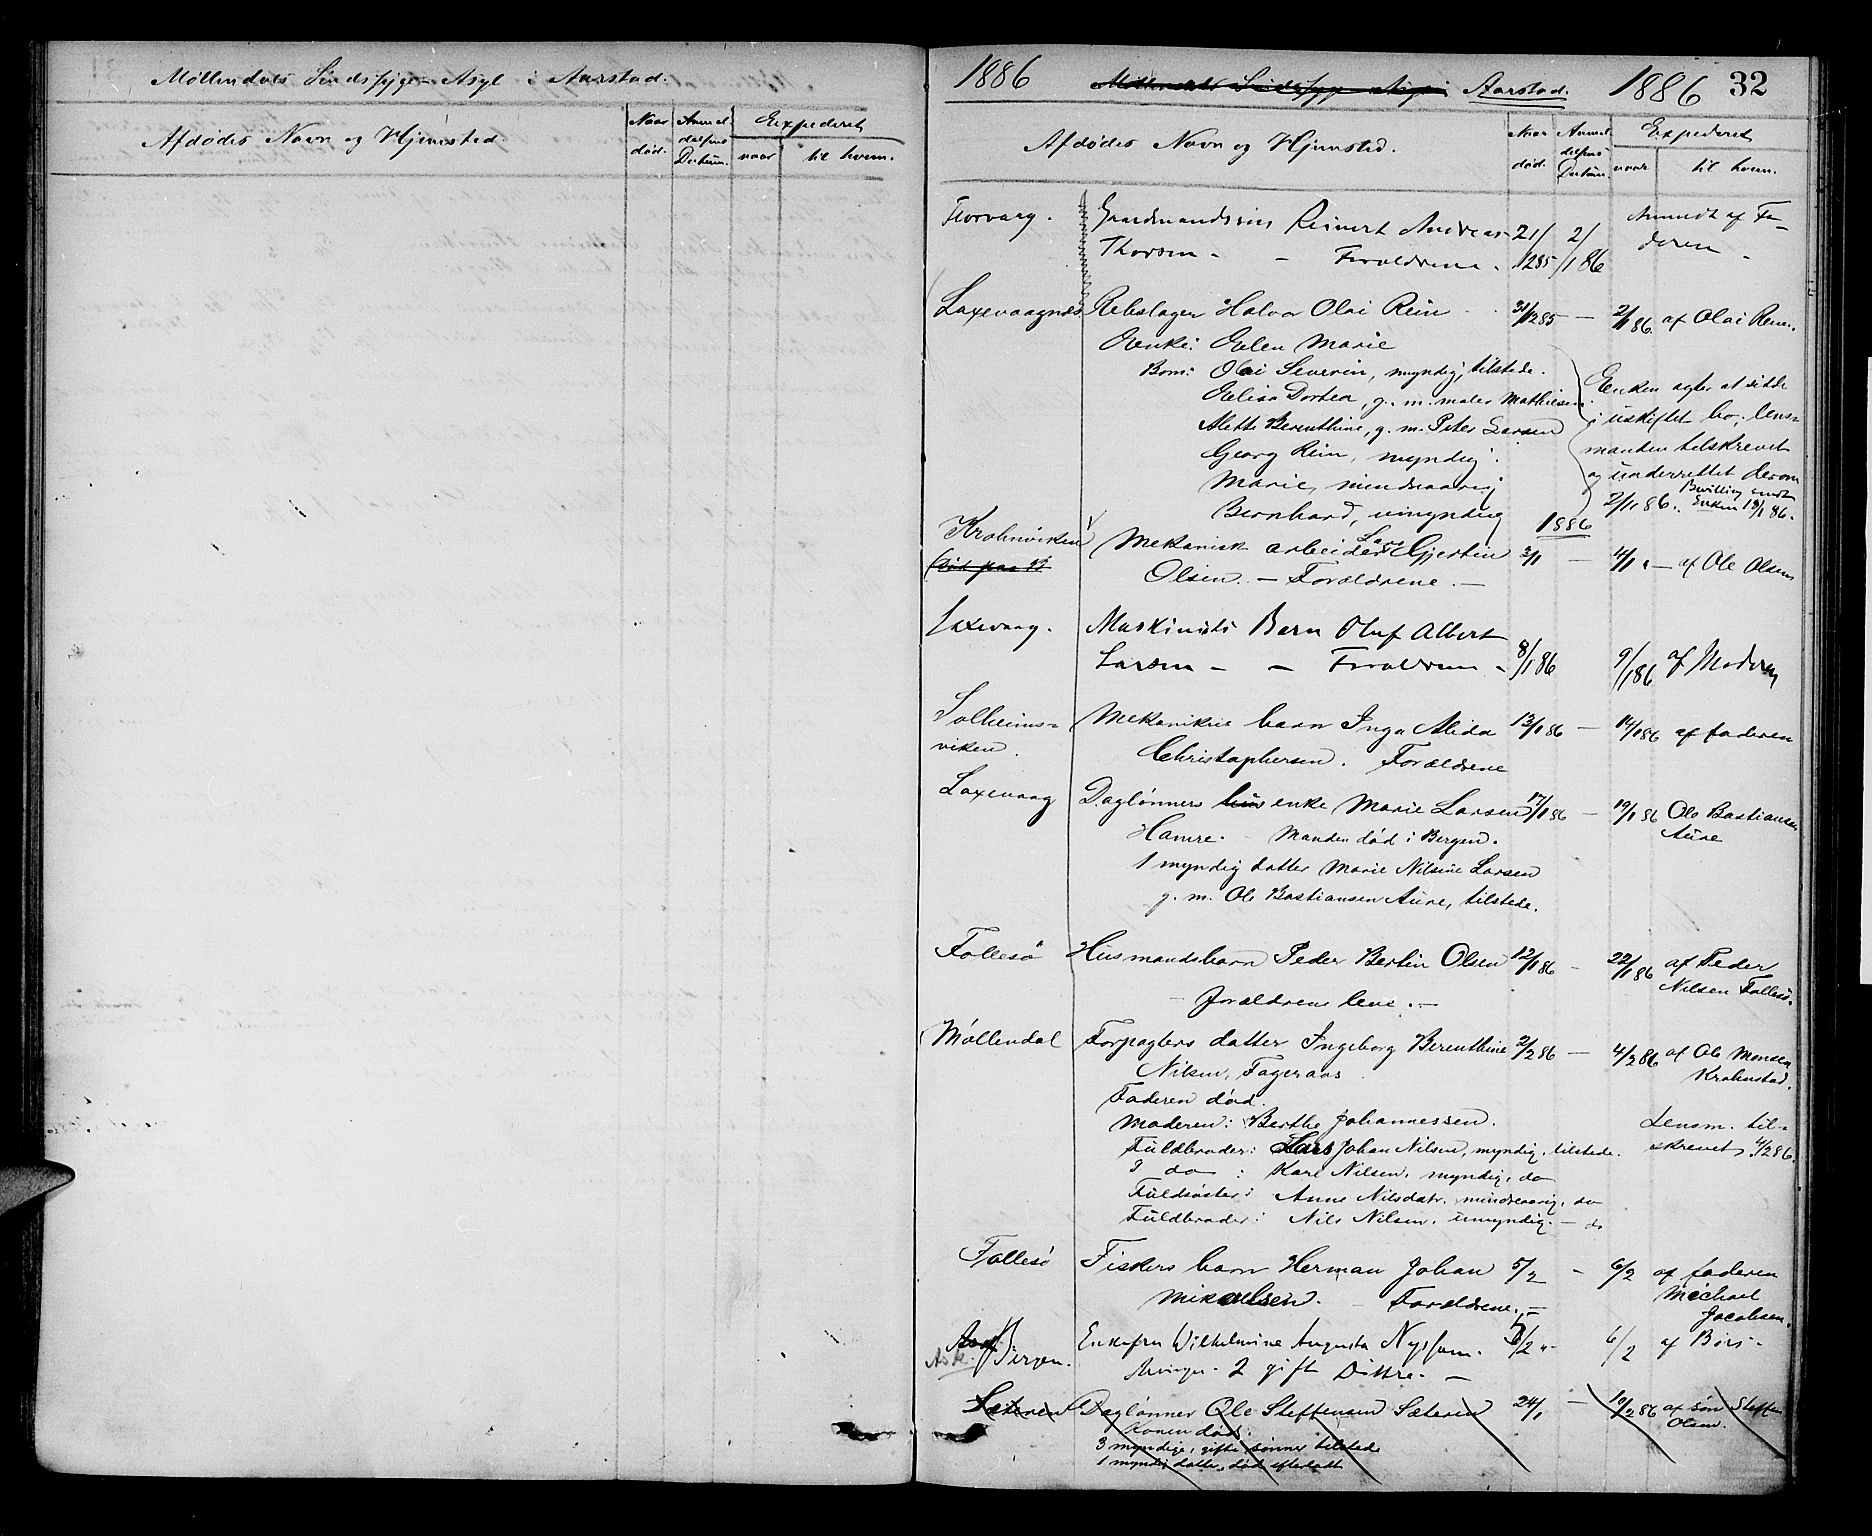 Møllendals Sindssyge-Asyl i Aarstad.
Afdødes Navn og Hjemsted
Naar død.
Anmeldelsens Datum.
Expederet
naar
til hvem.
1886
Aarstad.
1886
32
Afdødes Navn og Hjemsted.
Naar død.
Anmeldelsens Datum
Expederet
naar
til hvem.
Florvaag. Gaardmandssøn Reinert Andreas 21/12 85 2/1 86 Anmeldt af Fa-
Thorsen - - Forældrene - deren -
Laxevaagnæs Rebslager Halvor Olai Rein 31/12 85 — 2/1 86 af Olai Rein.
Enke: Helen Marie
Børn: Olai Severin, myndig, tilstede.
Helisa Dortea, g. m. maler Mathiesen
Alette Berenthine, g. m. Peter Larsen
Georg Rein, myndig.
Marie, mindreaarig
Bernhard, umyndig
Enken agter at sidde
i uskiftet bo, lens-
manden tilskrevet
og underrettet derom
2/1 86. Bevilling sendt
Enken 18/1 86.
1886
Krohnviken Mekanisk arbeider Lars Gjertin 3/1 — 4/1 " — af Ole Olsen
(død paa
Olsen. — Forældrene. —
Laxevaag. Maskinists Barn Oluf Albert
Larsen — — Forældrene - 8/1 86 9/1 86 af Moderen
Solheims- Mekanikus barn Inga Alida 13/1 86 — 14/1 86 af faderen
viken. Christophersen. Forældrene
Laxevaag Daglønners enke Marie Larsen 17/1 86 — 19/1 86 Ole Bastiansen
Hamre. - Manden død i Bergen. Aure
1 myndig datter Marie Nilsine Larsen
g. m. Ole Bastiansen Aure, tilstede.
Follesø Husmandsbarn Peder Bertin Olsen 12/1 86 — 22/1 86 af Peder
— forældrene leve. — Nilsen Follesø.
Møllendal Forpagters datter Ingeborg Berenthine 2/2 86 — 4/2 86 af Ole Monsen
Nilsen, Fageraas Krohnstad.
Faderen død.
Moderen: Berthe Johannessen. Lensm. til-
Fuldbroder: Lars Johan Nilsen, myndig, tilstede. skrevet 4/2 86.
do : Karl Nilsen, myndig, do
Fuldsøster: Anne Nilsdatr. mindreaarig, do
Fuldbroder: Nils Nilsen, umyndig. — do
Follesø Fiskers barn Herman Johan 5/2 — 6/2 af faderen
Mikaelsen. — Forældrene. — Michael
Jacobsen.
Ask. Bergen. Enkefru Wilhelmine Augusta 5/2 " 6/2 af Børs-
Arvinger - 2 gifte Døttre. —
Sæteren Daglønner Ole Steffensen Sæteren 24/1 — 10/2 86 af søn Steffen
Konen død. Olsen.
3 myndige, gifte sønner tilstede
1 myndig datter, død efterladt